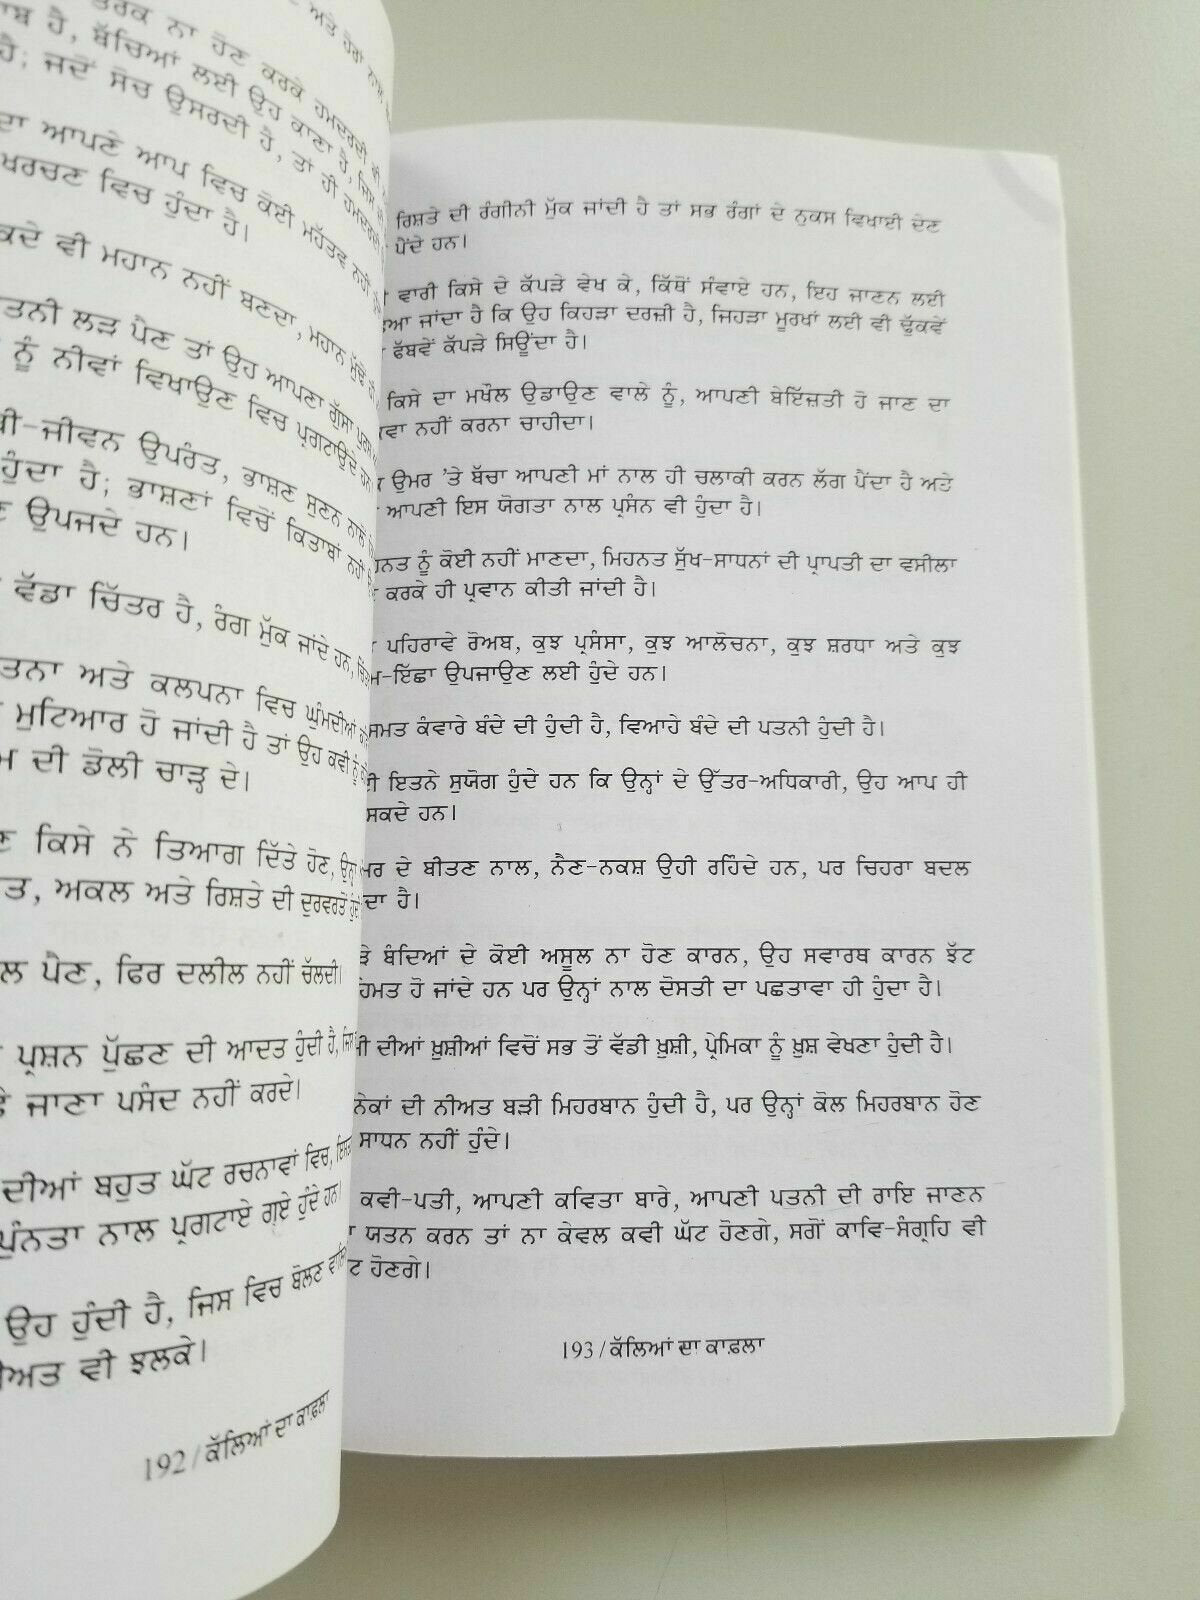 ਤਰਕ ਨਾ ਹੋਣ ਕਰਕੇ ਹਮਦਰਦੀ ਦੀ
ਹੈ, ਬੱਚਿਆਂ ਲਈ ਉਹ ਕਾਣਾ ਹੈ, ਜਿਸ
ਹੈ; ਜਦੋਂ ਸੋਚ ਉਸਰਦੀ ਹੈ, ਤਾਂ ਹੀ ਹਮਦਰਦੀ
ਦਾ ਆਪਣੇ ਆਪ ਵਿਚ ਕੋਈ ਮਹੱਤਵ ਨਹੀਂ
ਖਰਚਣ ਵਿਚ ਹੁੰਦਾ ਹੈ।
ਕਦੇ ਵੀ ਮਹਾਨ ਨਹੀਂ ਬਣਦਾ, ਮਹਾਨ ਮੁੱਢੋਂ ਹੀ
ਲੜ ਪੈਣ ਤਾਂ ਉਹ ਆਪਣਾ ਗੁੱਸਾ
ਨੂੰ ਨੀਵਾਂ ਵਿਖਾਉਣ ਵਿਚ ਪ੍ਰਗਟਾਉਂਦੇ ਹਨ
ਜੀਵਨ ਉਪਰੰਤ, ਭਾਸ਼ਣ ਸੁਣਨ ਨਾਲੋਂ
ਹੁੰਦਾ ਹੈ; ਭਾਸ਼ਣਾਂ ਵਿਚੋਂ ਕਿਤਾਬਾਂ ਨਹੀਂ
ਉਪਜਦੇ ਹਨ।
ਵੱਡਾ ਚਿੱਤਰ ਹੈ, ਰੰਗ ਮੁੱਕ ਜਾਂਦੇ ਹਨ,
ਅਤੇ ਕਲਪਨਾ ਵਿਚ ਘੁੰਮਦੀਆਂ
ਮੁਟਿਆਰ ਹੋ ਜਾਂਦੀ ਹੈ ਤਾਂ ਉਹ ਕਵੀ ਨੂੰ
ਦੀ ਡੋਲੀ ਚਾੜ੍ਹ ਦੇ।
ਕਿਸੇ ਨੇ ਤਿਆਗ ਦਿੱਤੇ ਹੋਣ, ਉਨ੍ਹਾਂ
ਅਕਲ ਅਤੇ ਰਿਸ਼ਤੇ ਦੀ ਦੁਰਵਰਤੋਂ ਹੁੰਦੀ
ਪੈਣ, ਫਿਰ ਦਲੀਲ ਨਹੀਂ ਚੱਲਦੀ।
ਪ੍ਰਸ਼ਨ ਪੁੱਛਣ ਦੀ ਆਦਤ ਹੁੰਦੀ ਹੈ,
ਜਾਣਾ ਪਸੰਦ ਨਹੀਂ ਕਰਦੇ।
ਦੀਆਂ ਬਹੁਤ ਘੱਟ ਰਚਨਾਵਾਂ ਵਿਚ,
ਨਾਲ ਪ੍ਰਗਟਾਏ ਗਏ ਹੁੰਦੇ ਹਨ।
ਉਹ ਹੁੰਦੀ ਹੈ, ਜਿਸ ਵਿਚ ਬੋਲਣ
ਵੀ ਝਲਕੇ।
192/ਕੱਲਿਆਂ ਦਾ ਕਾਫ਼ਲਾ
ਰਿਸ਼ਤੇ ਦੀ ਰੰਗੀਨੀ ਮੁੱਕ ਜਾਂਦੀ ਹੈ ਤਾਂ ਸਭ ਰੰਗਾਂ ਦੇ ਨੁਕਸ ਵਿਖਾਈ ਦੇਣ
ਪੈਂਦੇ ਹਨ।
ਵਾਰੀ ਕਿਸੇ ਦੇ ਕੱਪੜੇ ਵੇਖ ਕੇ, ਕਿੱਥੋਂ ਸੰਵਾਏ ਹਨ, ਇਹ ਜਾਣਨ ਲਈ
ਜਾਂਦਾ ਹੈ ਕਿ ਉਹ ਕਿਹੜਾ ਦਰਜ਼ੀ ਹੈ, ਜਿਹੜਾ ਮੂਰਖਾਂ ਲਈ ਵੀ ਢੁੱਕਵੇਂ
ਫੱਬਵੇਂ ਕੱਪੜੇ ਸਿਊਂਦਾ ਹੈ।
ਕਿਸੇ ਦਾ ਮਖੌਲ ਉਡਾਉਣ ਵਾਲੇ ਨੂੰ, ਆਪਣੀ ਬੇਇੱਜ਼ਤੀ ਹੋ ਜਾਣ ਦਾ
ਨਹੀਂ ਕਰਨਾ ਚਾਹੀਦਾ।
ਉਮਰ ’ਤੇ ਬੱਚਾ ਆਪਣੀ ਮਾਂ ਨਾਲ ਹੀ ਚਲਾਕੀ ਕਰਨ ਲੱਗ ਪੈਂਦਾ ਹੈ ਅਤੇ
ਆਪਣੀ ਇਸ ਯੋਗਤਾ ਨਾਲ ਪ੍ਰਸੰਨ ਵੀ ਹੁੰਦਾ ਹੈ।
ਨੂੰ ਕੋਈ ਨਹੀਂ ਮਾਣਦਾ, ਮਿਹਨਤ ਸੁੱਖ-ਸਾਧਨਾਂ ਦੀ ਪ੍ਰਾਪਤੀ ਦਾ ਵਸੀਲਾ
ਕਰਕੇ ਹੀ ਪ੍ਰਵਾਨ ਕੀਤੀ ਜਾਂਦੀ ਹੈ।
ਪਹਿਰਾਵੇ ਰੋਅਬ, ਕੁਝ ਪ੍ਰਸੰਸਾ, ਕੁਝ ਆਲੋਚਨਾ, ਕੁਝ ਸ਼ਰਧਾ ਅਤੇ ਕੁਝ
ਇੱਛਾ ਉਪਜਾਉਣ ਲਈ ਹੁੰਦੇ ਹਨ।
ਕੰਵਾਰੇ ਬੰਦੇ ਦੀ ਹੁੰਦੀ ਹੈ, ਵਿਆਹੇ ਬੰਦੇ ਦੀ ਪਤਨੀ ਹੁੰਦੀ ਹੈ।
ਇਤਨੇ ਸੁਯੋਗ ਹੁੰਦੇ ਹਨ ਕਿ ਉਨ੍ਹਾਂ ਦੇ ਉੱਤਰ-ਅਧਿਕਾਰੀ, ਉਹ ਆਪ ਹੀ
ਸਕਦੇ ਹਨ।
ਦੇ ਬੀਤਣ ਨਾਲ, ਨੈਣ-ਨਕਸ਼ ਉਹੀ ਰਹਿੰਦੇ ਹਨ, ਪਰ ਚਿਹਰਾ ਬਦਲ
ਹੈ।
ਬੰਦਿਆਂ ਦੇ ਕੋਈ ਅਸੂਲ ਨਾ ਹੋਣ ਕਾਰਨ, ਉਹ ਸਵਾਰਥ ਕਾਰਨ ਝੱਟ
ਹੋ ਜਾਂਦੇ ਹਨ ਪਰ ਉਨ੍ਹਾਂ ਨਾਲ ਦੋਸਤੀ ਦਾ ਪਛਤਾਵਾ ਹੀ ਹੁੰਦਾ ਹੈ।
ਦੀਆਂ ਖ਼ੁਸ਼ੀਆਂ ਵਿਚੋਂ ਸਭ ਤੋਂ ਵੱਡੀ ਖ਼ੁਸ਼ੀ, ਪ੍ਰੇਮਿਕਾ ਨੂੰ ਖ਼ੁਸ਼ ਵੇਖਣਾ ਹੁੰਦੀ ਹੈ।
ਦੀ ਨੀਅਤ ਬੜੀ ਮਿਹਰਬਾਨ ਹੁੰਦੀ ਹੈ, ਪਰ ਉਨ੍ਹਾਂ ਕੋਲ ਮਿਹਰਬਾਨ ਹੋਣ
ਸਾਧਨ ਨਹੀਂ ਹੁੰਦੇ।
ਕਵੀ-ਪਤੀ, ਆਪਣੀ ਕਵਿਤਾ ਬਾਰੇ, ਆਪਣੀ ਪਤਨੀ ਦੀ ਰਾਇ ਜਾਣਨ
ਯਤਨ ਕਰਨ ਤਾਂ ਨਾ ਕੇਵਲ ਕਵੀ ਘੱਟ ਹੋਣਗੇ, ਸਗੋਂ ਕਾਵਿ-ਸੰਗ੍ਰਹਿ ਵੀ
ਹੋਣਗੇ।
193/ਕੱਲਿਆਂ ਦਾ ਕਾਫ਼ਲਾ